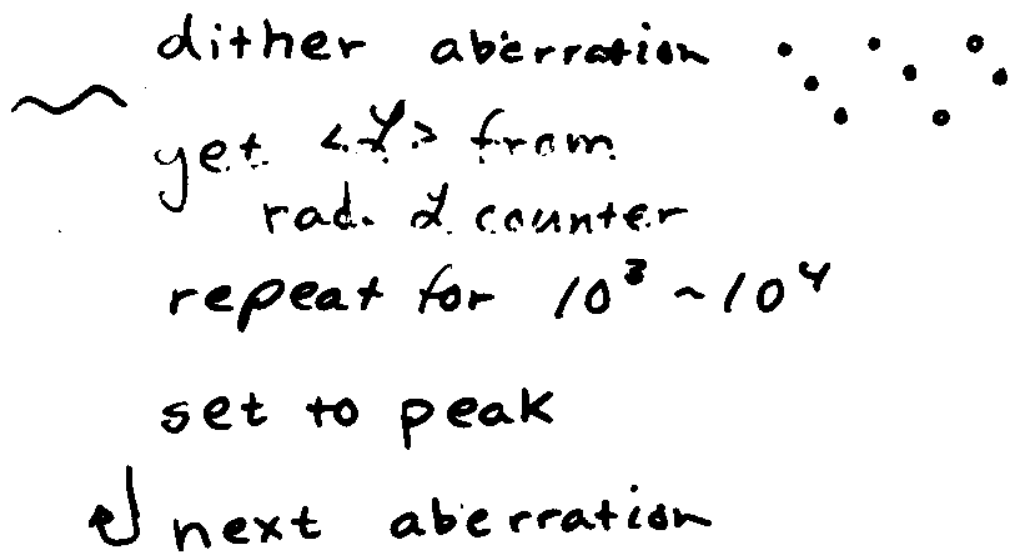 dither aberration
get <L> from
rad. L counter
repeat for 10³ ~ 10⁴
set to peak
next aberration